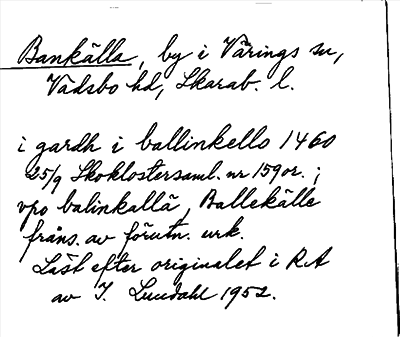 Bankälla, by i Värings sn,
Vadsbo hd, Skarab. l.
i gardh i ballinkello 1460
25/9 Skoklostersaml. nr 159 or. ;
vpo balinkallä, Ballekälle
fråns. av förutn. urk.
Läst efter originalet i RA
av I. Lundahl 1952.